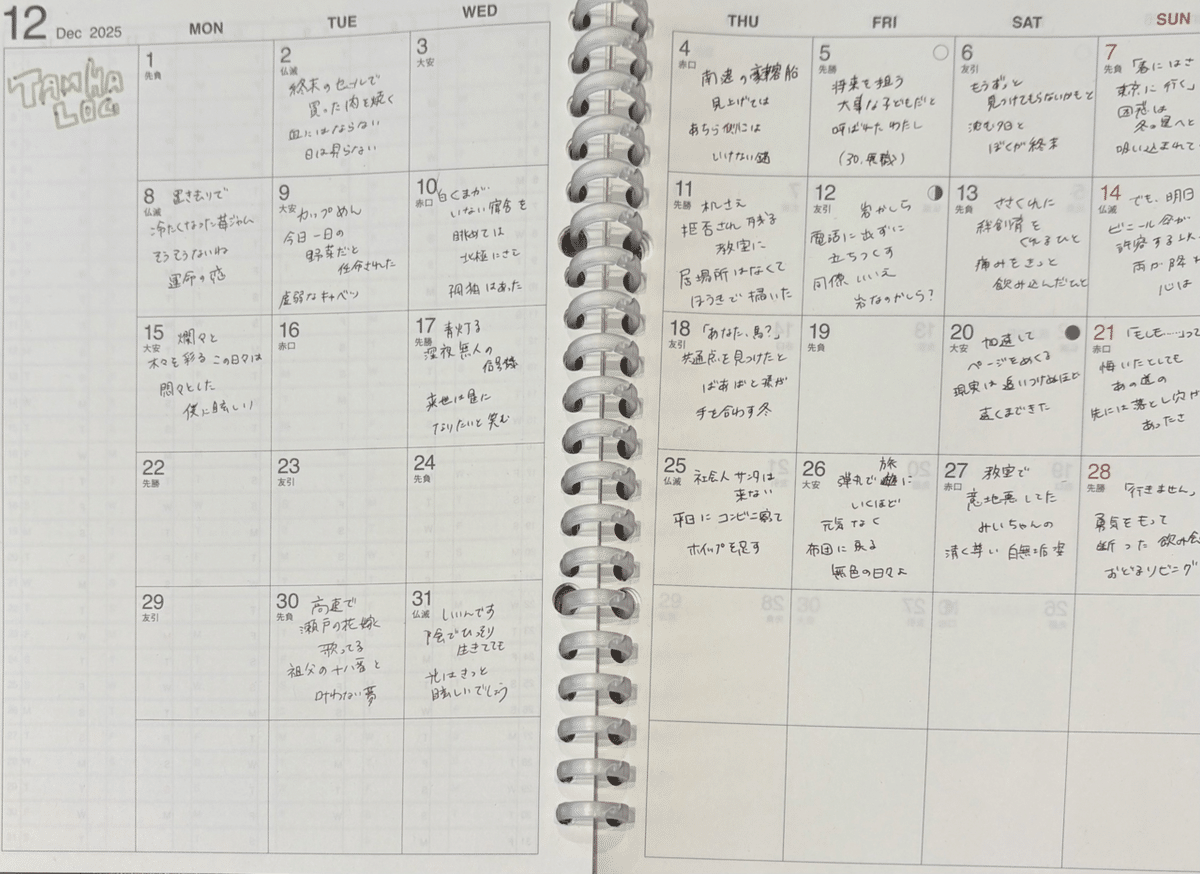 12 Dec 2025
MON
TUE
WED
THU
FRI
SAT
SUN
TANKA
LOG
1
先負
2
仏滅
終末のセールで
買った肉を焼く
皿にはならない
日は昇らない
3
大安
4
赤口
南進の豪華客船
見上げては
あちら側には
いけない鍵
5
先勝
将来を担う
大事な子どもだと
呼ばれたわたし
(30.無職)
6
友引
もうずっと
見つけてもらないかもと
沈む夕日と
ぼくが終末
7
先負
「春にはさ
東京に行く」
困惑は
冬の星へと
吸い込まれて
8
仏滅
置きもりで
冷たくなった苺ジャム
そうそうないね
運命の恋
9
大安
カップめん
今日一日の
野菜だと
任命された
虚弱なキャベツ
10
赤口
白くまが
いない宿舎を
眺めては
北極にさえ
孤独はあった
11
先勝
机さえ
拒否され残る
教室に
居場所はなくて
ほうきで描いた
12
友引
岩かしら
電話に出ずに
立ちつくす
同僚 いいえ
岩なのかしら?
13
先負
ささくれに
絆創膏を
くれるひと
痛みをきっと
飲み込んだひと
14
仏滅
でも、明日
ビニール傘が
許容する
雨が降
心は
15
大安
爛々と
木々を彩る この日々は
悶々とした
僕に眩しい
16
赤口
17
先勝
青灯る
深夜無人の
信号機
来世は星に
なりたいと笑む
18
友引
「あなた、馬?」
共通点を見つけたと
ばあばと孫が
手を合わす冬
19
先負
20
大安
加速して
ページをめくる
現実は追いつけぬほど
遠くまできた
21
赤口
「もしも…」って
悔いたとしても
あの道の
先には落とし穴が
あったさ
22
先勝
23
友引
24
先負
25
仏滅
社会人 サンタは
来ない
平日に コンビニ寄って
ホイップを足す
26
大安
弾丸で 旅に
いくほど
元気なく
布団に戻る
無色の日々よ
27
赤口
教室で
意地悪してた
みいちゃんの
清く尊い 白無垢姿
28
先勝
「行きません」
勇気をもって
断った 飲み会
おどるリビング
29
友引
30
先負
高速で
瀬戸の花嫁
歌ってる
祖父の十八番と
叶わない夢
31
仏滅
いいんです
陰でひっそり
生きてても
光はきっと
眩しいでしょう